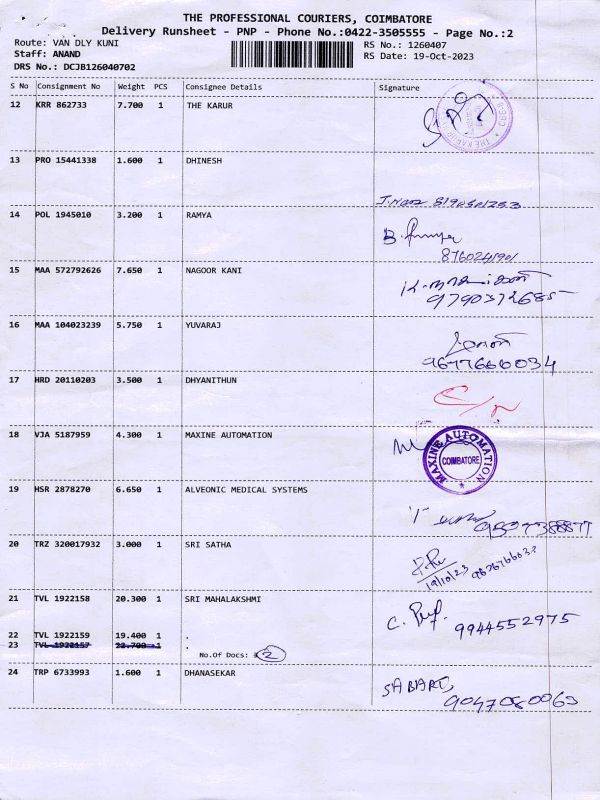 THE PROFESSIONAL COURIERS, COIMBATORE
Delivery Runsheet - PNP - Phone No.:0422-3505555 - Page No.:2
Route: VAN DLY KUNI RS No.: 1260407
Staff: ANAND RS Date: 19-Oct-2023
DRS No.: DCJB126040702
S No Consignment No Weight PCS Consignee Details Signature
12 KRR 862733 7.700 1 THE KARUR
13 PRO 15441338 1.600 1 DHINESH
14 POL 1945010 3.200 1 RAMYA
B.
8760241901
15 MAA 572792626 7.650 1 NAGOOR KANI
9790372685
16 MAA 104023239 5.750 1 YUVARAJ
9677666034
17 HRD 20110203 3.500 1 DHYANITHUN
18 VJA 5187959 4.300 1 MAXINE AUTOMATION
MAXINE AUTOMATION
COIMBATORE
19 HSR 2878270 6.650 1 ALVEONIC MEDICAL SYSTEMS
20 TRZ 320017932 3.000 1 SRI SATHA
19/10/23
21 TVL 1922158 20.300 1 SRI MAHALAKSHMI
C.
9944552975
22 TVL 1922159 19.400 1 .
23 TVL 1922157 22.700 1 .
No.Of Docs: 2
24 TRP 6733993 1.600 1 DHANASEKAR
9047080063